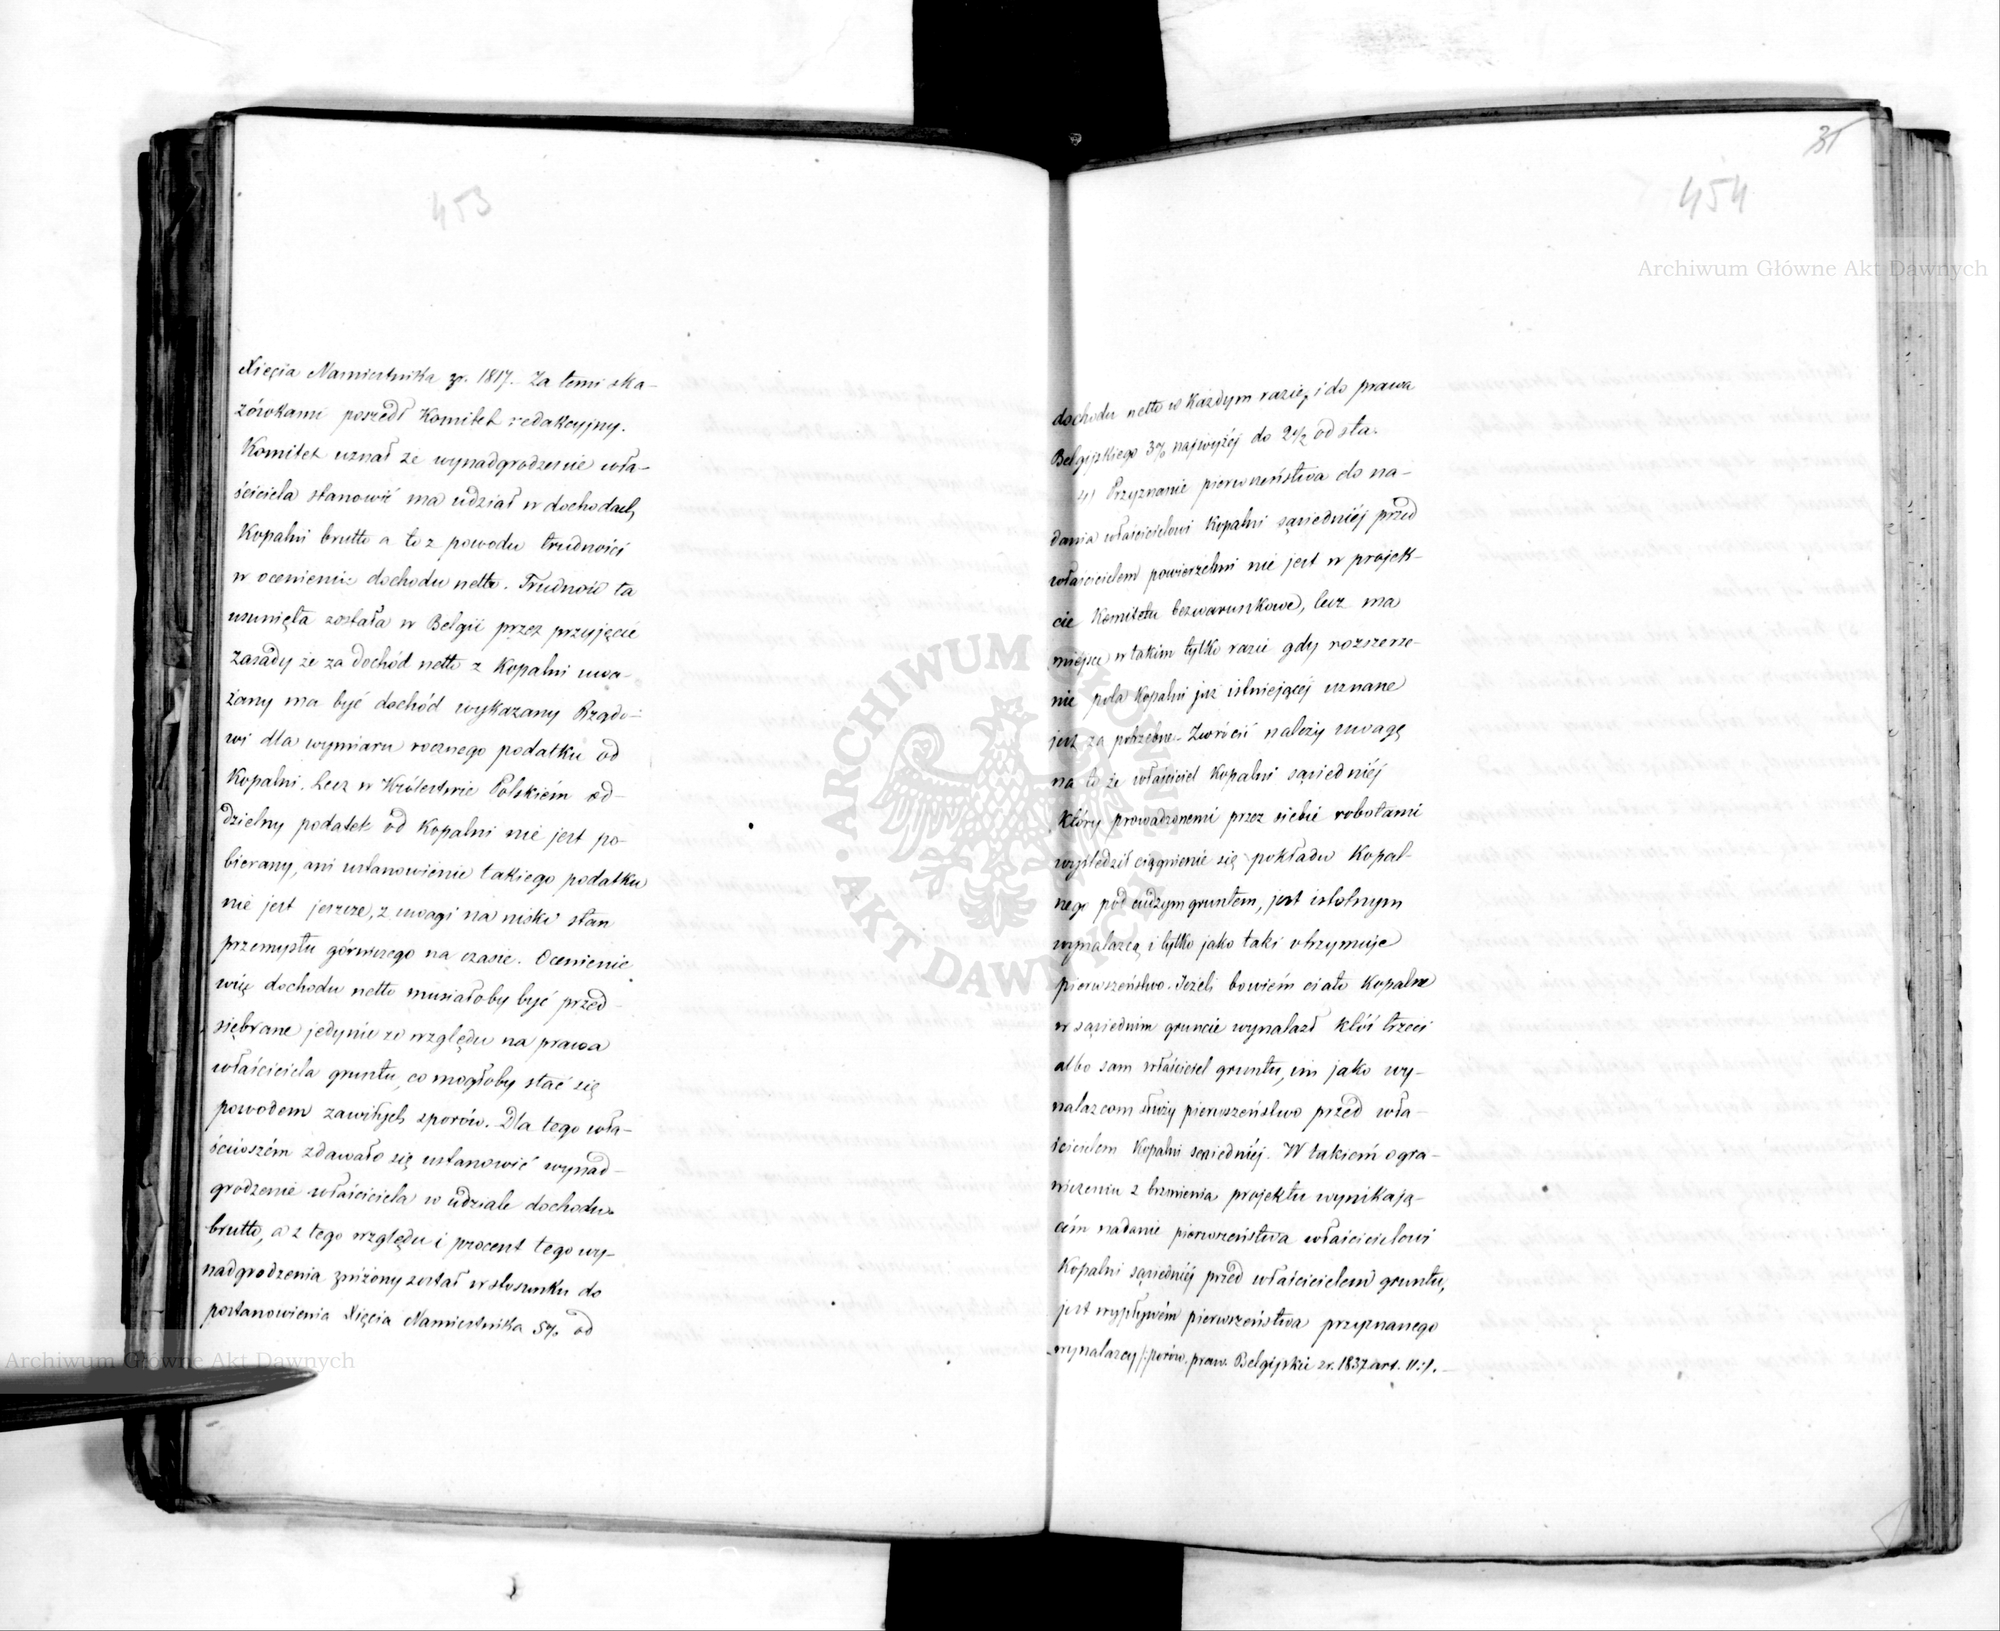 453
Xięcia Namiestnika zr. 1817. Za temi ska-
zówkami poszedł Komitet redakcyjny.
Komitet uznał że wynadgrodzenie wła-
ściciela stanowić ma udział w dochodach
Kopalni brutto a to z powodu trudności
w ocenieniu dochodu netto. Trudność ta
usunięta została w Belgii przez przyjęcie
zasady że za dochód netto z Kopalni uwa-
żany ma być dochód wykazany Rządo-
wi dla wymiaru rocznego podatku od
Kopalni. Lecz w Królestwie Polskiém od-
dzielny podatek od Kopalni nie jest po-
bierany, ani ustanowienie takiego podatku
nie jest jeszcze, z uwagi na niski stan
przemysłu górniczego na czasie. Ocenienie
więc dochodu netto musiałoby być przed-
siębrane jedynie ze względu na prawa
właściciela gruntu, co mogłoby stać się
powodem zawiłych sporów. Dla tego wła-
ściwszém zdawało się ustanowić wynad-
grodzenie właściciela w udziale dochodu
brutto, a z tego względu i procent tego wy-
nadgrodzenia zniżony został w stosunku do
postanowienia Xięcia Namiestnika 5% od
31
454
Archiwum Główne Akt Dawnych
dochodu netto w każdym razie, i do prawa
Belgijskiego 3% najwyżéj do 2½ od sta.
4) Przyznanie pierwszeństwa do na-
dania właścicielowi Kopalni sąsiedniéj przed
właścicielem powierzchni nie jest w projek-
cie Komitetu bezwarunkowe, lecz ma
miejsce w takim tylko razie gdy rozszerze-
nie pola Kopalni już istniejącéj uznane
jest za potrzebne. Zwrócić należy uwagę
na to że właściciel Kopalni sąsiedniéj
który prowadzonemi przez siebie robotami
wyśledził ciągnienie się pokładu Kopal-
nego pod cudzym gruntem, jest istotnym
wynalazcą i tylko jako taki otrzymuje
pierwszeństwo. Jeżeli bowiém ciało Kopalne
w sąsiednim gruncie wynalazł któś trzeci
albo sam właściciel gruntu, im jako wy-
nalazcom służy pierwszeństwo przed wła-
ścicielem Kopalni sąsiedniéj. W takiém ogra-
niczeniu z brzmienia projektu wynikają-
cém nadanie pierwszeństwa właścicielowi
Kopalni sąsiedniéj przed właścicielem gruntu,
jest wypływem pierwszeństwa przyznanego
wynalazcy /:porów. praw. Belgijskie zr. 1837 art. 11:/.
Archiwum Główne Akt Dawnych
ARCHIWUM GŁÓWNE AKT DAWNYCH